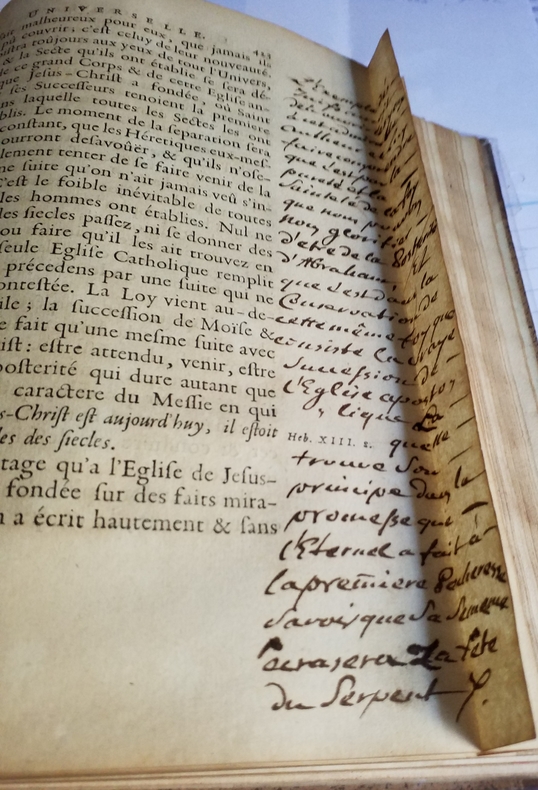 UNIVERSELLE. 413
malheureux pour eux, que jamais ils
couvrir; c'est celuy de leur nouveauté.
toûjours aux yeux de tout l'Univers,
& la Secte qu'ils ont établie se sera dé-
ce grand Corps & de cette Eglise an-
que Jesus-Christ a fondée, où saint
ses Successeurs tenoient la premiere
laquelle toutes les Sectes les ont
blis. Le moment de la separation sera
constant, que les Héretiques eux-mes-
pourront desavoûër, & qu'ils n'ose-
lement tenter de se faire venir de la
ne suite qu'on n'ait jamais veû s'in-
C'est le foible inévitable de toutes
les hommes ont établies. Nul ne
les siecles passez, ni se donner des
ou faire qu'il les ait trouvez en
seule Eglise Catholique remplit
précedens par une suite qui ne
ontestée. La Loy vient au-de-
ile; la succession de Moïse &
e fait qu'une mesme suite avec
ist: estre attendu, venir, estre
posterité qui dure autant que
caractere du Messie en qui
s-Christ est aujourd'huy, il estoit
les des siecles.
tage qu'a l'Eglise de Jesus-
fondée sur des faits mira-
a écrit hautement & sans
que nous
non glorifier
d'etre de la Posterité
d'Abraham, Et
que c'est dans la
Conservation de
cette même foy que
consiste la vraye
Succession de
l'Eglise aposto-
lique La
Heb. XIII. 8.
quelle
trouve Son
principe dans la
promesse que
l'Eternel a fait à
la premiere Pecheresse
Savoir que Sa Semence
Ecrasera La tête
du Serpent